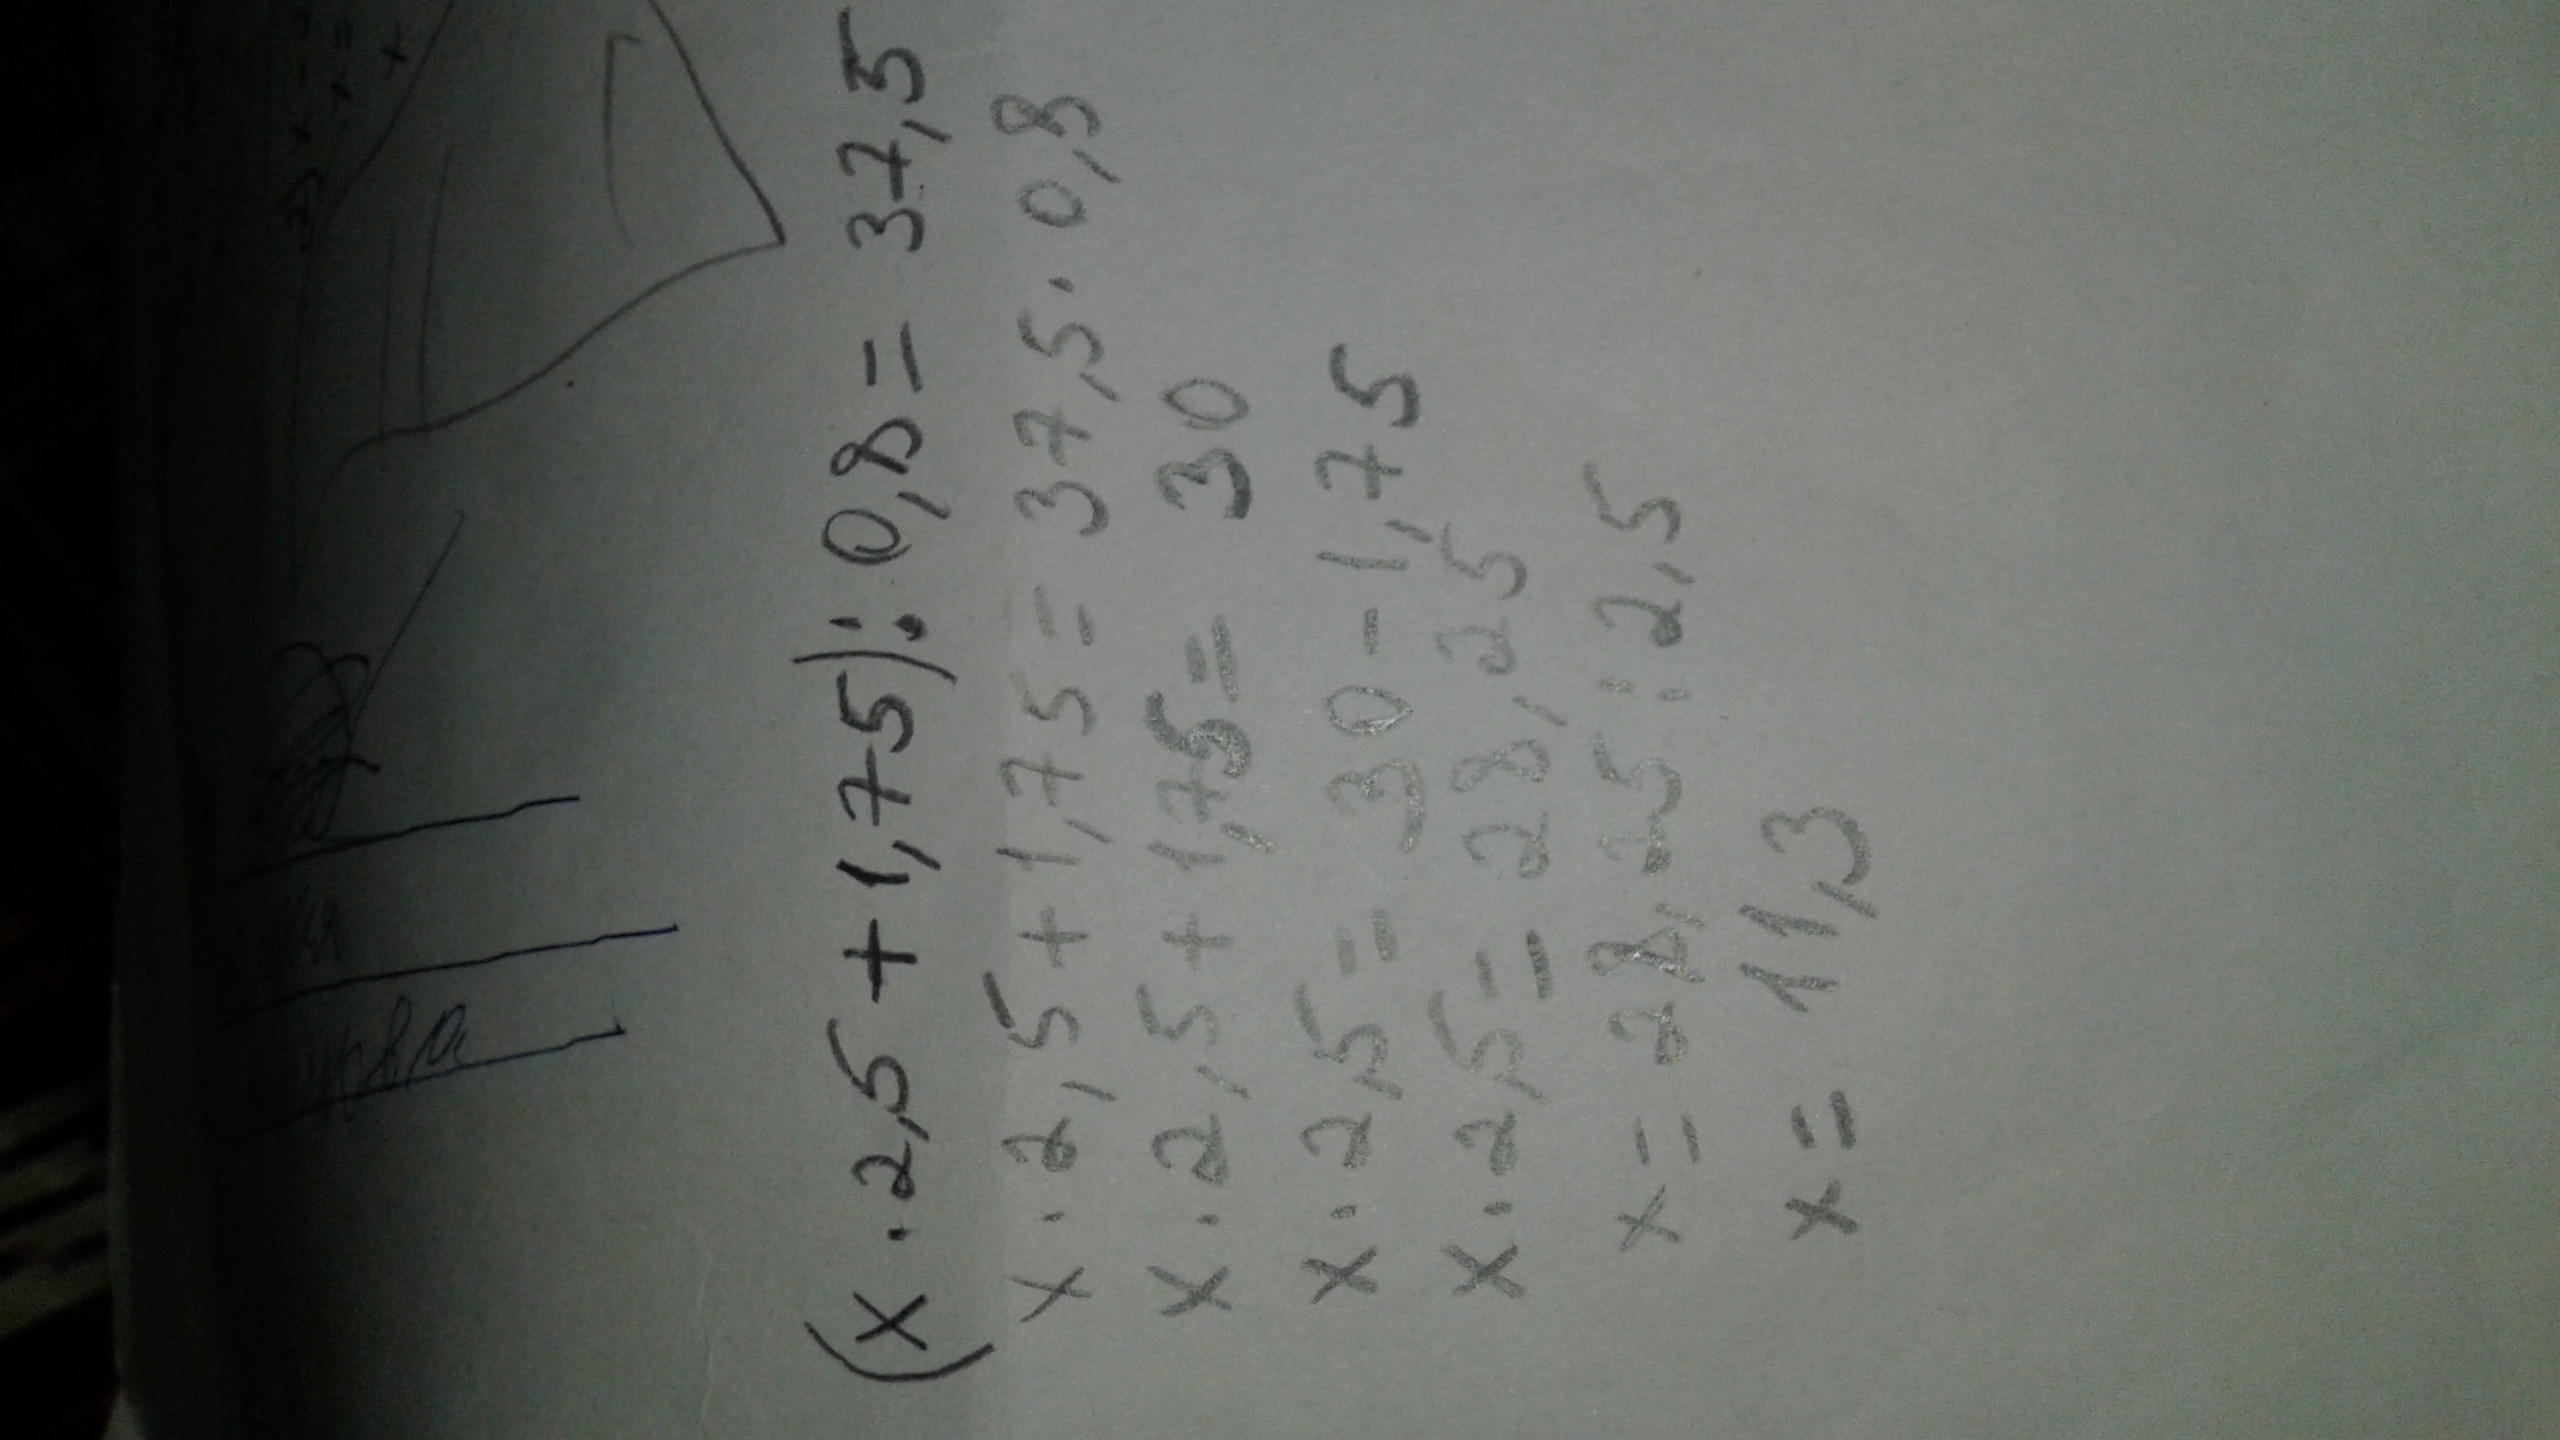 (x · 2,5 + 1,75) : 0,8 = 37,5
x · 2,5 + 1,75 = 37,5 · 0,8
x · 2,5 + 1,75 = 30
x · 2,5 = 30 - 1,75
x · 2,5 = 28,25
x = 28,25 : 2,5
x = 11,3